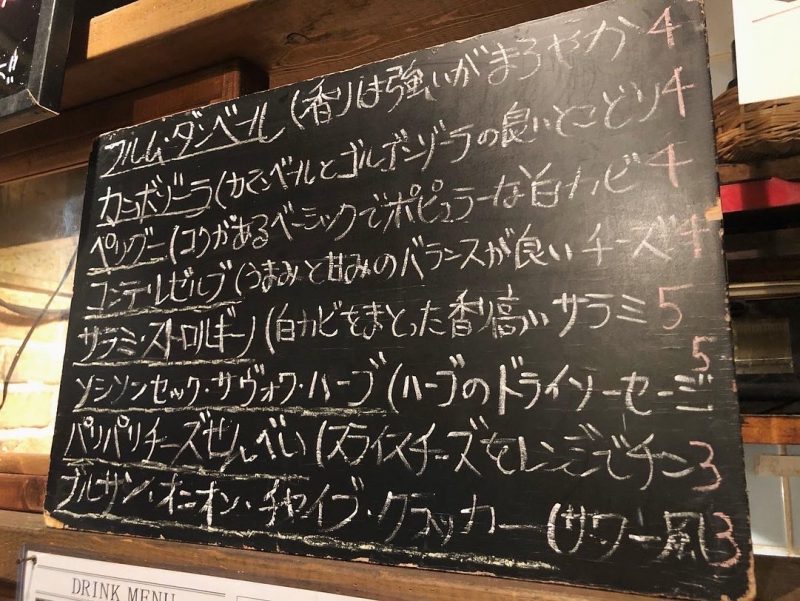 フルム・ダンベール(香りは強いがまろやか 4
カンボゾーラ(カマンベールとゴルゴンゾーラの良いとこどり 4
ペリグー(コクがあるベーシックでポピュラーな白カビ 4
コンテ・レゼルブ(うまみと甘みのバランスが良いチーズ 4
サラミ・ストロルギーノ(白カビをまとった香り高いサラミ 5
ソシソンセック・サヴォワ・ハーブ(ハーブのドライソーセージ 5
パリパリチーズせんべい(スライスチーズをレンジでチン 3
ブルサン・オニオン・チャイブ・クラッカー(サワー風 3
DRINK MENU